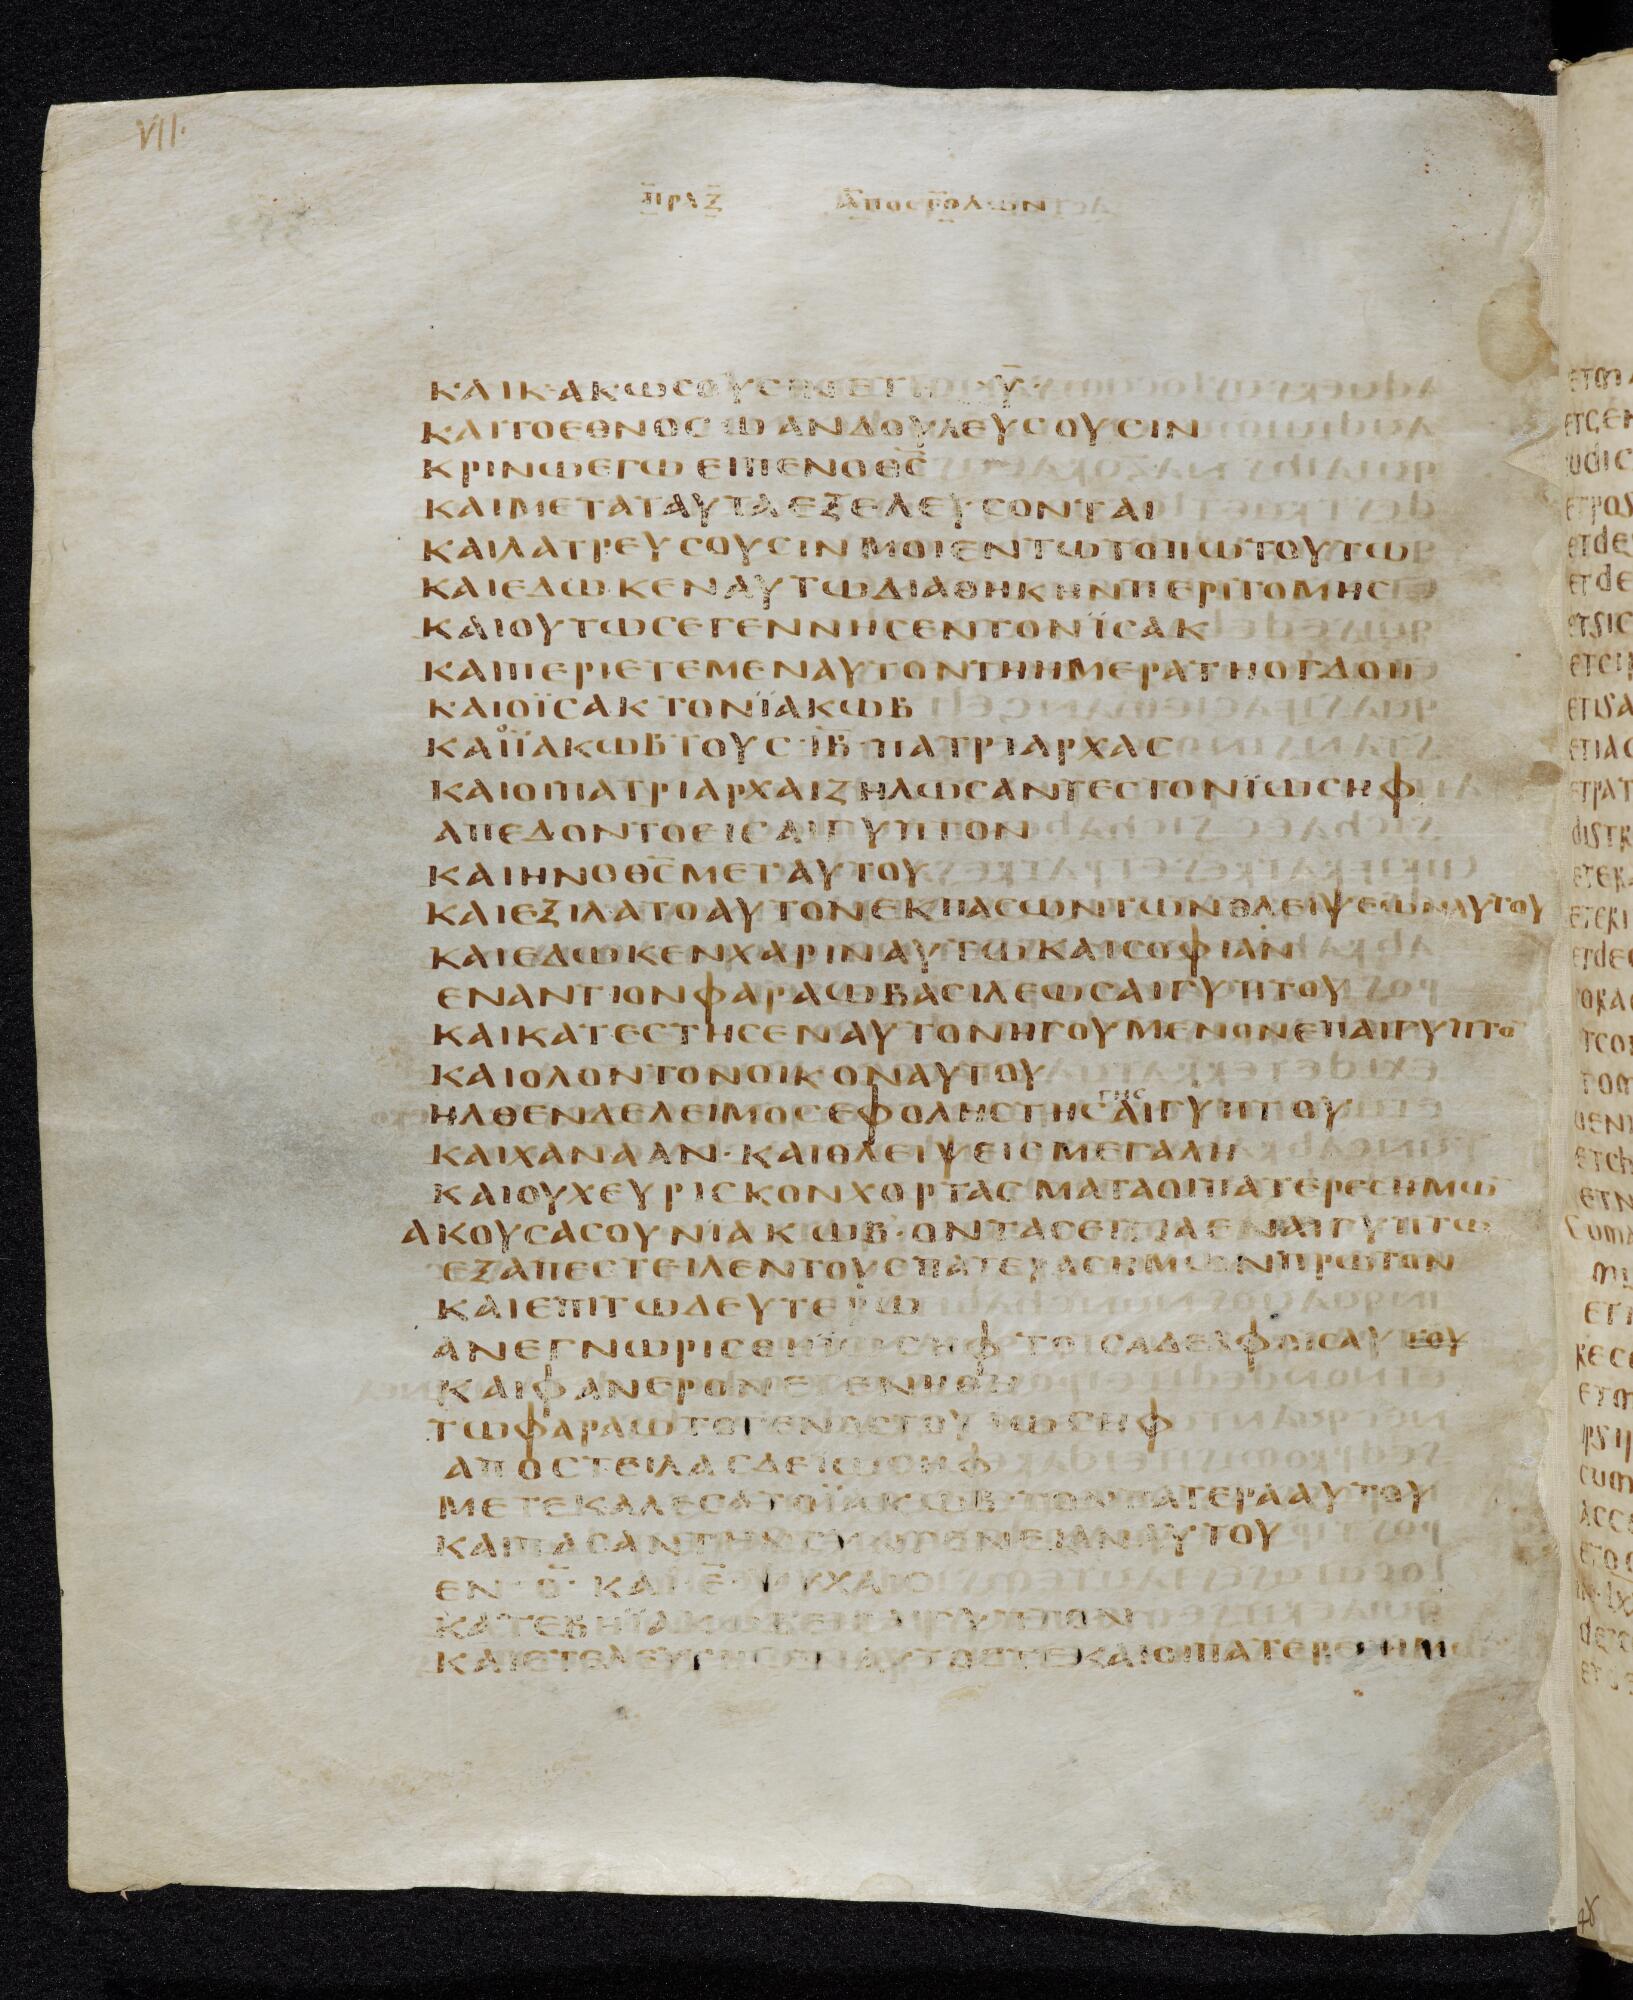 VII·
ΠΡΑΞ ΑΠΟΣΤΟΛΩΝ
ΚΑΙΚΑΚΩСΟΥСΙΝΕΤΗ ·Υ̅·
ΚΑΙΤΟΕΘΝΟСΩΑΝΔΟΥΛΕΥСΟΥСΙΝ
ΚΡΙΝΩΕΓΩΕΙΠΕΝΟΘ̅С̅
ΚΑΙΜΕΤΑΤΑΥΤΑΕΞΕΛΕΥСΟΝΤΑΙ
ΚΑΙΛΑΤΡΕΥСΟΥСΙΝΜΟΙΕΝΤΩΤΟΠΩΤΟΥΤΩ
ΚΑΙΕΔΩΚΕΝΑΥΤΩΔΙΑΘΗΚΗΝΠΕΡΙΤΟΜΗС
ΚΑΙΟΥΤΩСΕΓΕΝΝΗСΕΝΤΟΝΪСΑΚ
ΚΑΙΠΕΡΙΕΤΕΜΕΝΑΥΤΟΝΤΗΗΜΕΡΑΤΗΟΓΔΟΗ
ΚΑΙΟΪСΑΚΤΟΝΪΑΚΩΒ
ΚΑΙΪΑΚΩΒΤΟΥС·Ι̅Β̅·ΠΑΤΡΙΑΡΧΑС
ΚΑΙΟΙΠΑΤΡΙΑΡΧΑΙΖΗΛΩСΑΝΤΕСΤΟΝΪΩСΗΦ
ΑΠΕΔΟΝΤΟΕΙСΑΙΓΥΠΤΟΝ
ΚΑΙΗΝΟΘ̅С̅ΜΕΤΑΥΤΟΥ
ΚΑΙΕΞΙΛΑΤΟΑΥΤΟΝΕΚΠΑСΩΝΤΩΝΘΛΕΙΨΕΩΝΑΥΤΟΥ
ΚΑΙΕΔΩΚΕΝΧΑΡΙΝΑΥΤΩΚΑΙСΟΦΙΑΝ
ΕΝΑΝΤΙΟΝΦΑΡΑΩΒΑСΙΛΕΩСΑΙΓΥΠΤΟΥ
ΚΑΙΚΑΤΕСΤΗСΕΝΑΥΤΟΝΗΓΟΥΜΕΝΟΝΕΠΑΙΓΥΠΤΟ̅
ΚΑΙΟΛΟΝΤΟΝΟΙΚΟΝΑΥΤΟΥ
ΗΛΘΕΝΔΕΛΕΙΜΟСΕΦΟΛΗСΤΗСΓΗСΑΙΓΥΠΤΟΥ
ΚΑΙΧΑΝΑΑΝ·ΚΑΙΘΛΕΙΨΕΙСΜΕΓΑΛΗ
ΚΑΙΟΥΧΕΥΡΙСΚΟΝΧΟΡΤΑСΜΑΤΑΟΙΠΑΤΕΡΕСΗΜΩ̅
ΑΚΟΥСΑСΟΥΝΙΑΚΩΒ·ΟΝΤΑСΕΙΤΙΑΕΝΑΙΓΥΠΤΩ
ΕΞΑΠΕСΤΕΙΛΕΝΤΟΥСΠΑΤΕΡΑСΗΜΩΝΠΡΩΤΟΝ
ΚΑΙΕΠΙΤΩΔΕΥΤΕΡΩ
ΑΝΕΓΝΩΡΙСΘΗΪΩСΗΦΤΟΙСΑΔΕΛΦΟΙСΑΥΤΟΥ
ΚΑΙΦΑΝΕΡΟΝΕΓΕΝΗΘΗ
ΤΩΦΑΡΑΩΤΟΓΕΝΟСΤΟΥΙΩСΗΦ
ΑΠΟСΤΕΙΛΑСΔΕΪΩСΗΦ
ΜΕΤΕΚΑΛΕСΑΤΟΪΑΚΩΒΤΟΝΠΑΤΕΡΑΑΥΤΟΥ
ΚΑΙΠΑСΑΝΤΗΝСΥΝΓΕΝΕΙΑΝΑΥΤΟΥ
ΕΝ·Ο̅·ΚΑΙ·Ε̅·ΨΥΧΑΙС
ΚΑΤΕΒΗΪΑΚΩΒΕΙСΑΙΓΥΠΤΟΝ
ΚΑΙΕΤΕΛΕΥΤΗСΕΝΑΥΤΟСΤΕΚΑΙΟΙΠΑΤΕΡΕСΗΜΩ